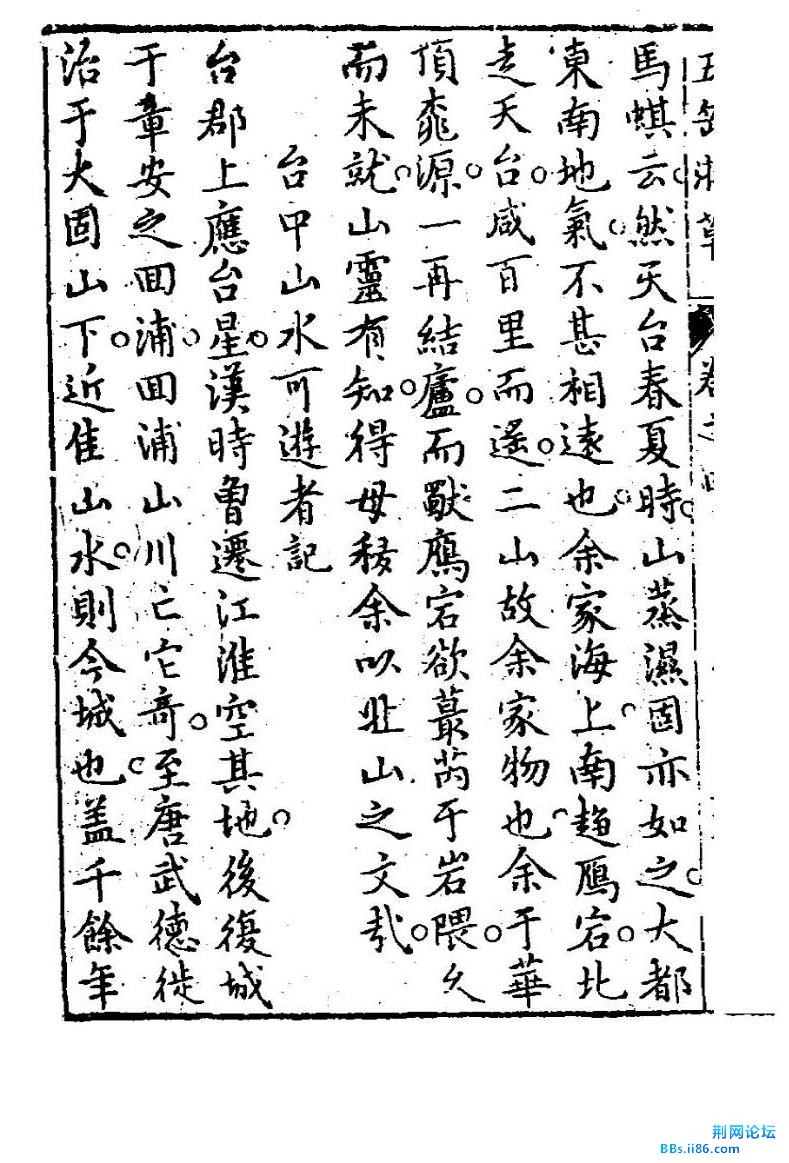 五岳游草 卷之四
馬蜞云然天台春夏時山蒸濕固亦如之大都
東南地氣不甚相遠也余家海上南趨鴈宕北
走天台咸百里而遙二山故余家物也余于華
頂桃源一再結廬而獸鷹宕欲蕞芮于岩隈久
而未就山靈有知得毋移余以北山之文哉
台中山水可遊者記
台郡上應台星漢時曾遷江淮空其地後復城
于章安之回浦回浦山川亡它奇至唐武德徙
治于大固山下近佳山水則今城也蓋千餘年
荆网论坛
BBs.ii86.com